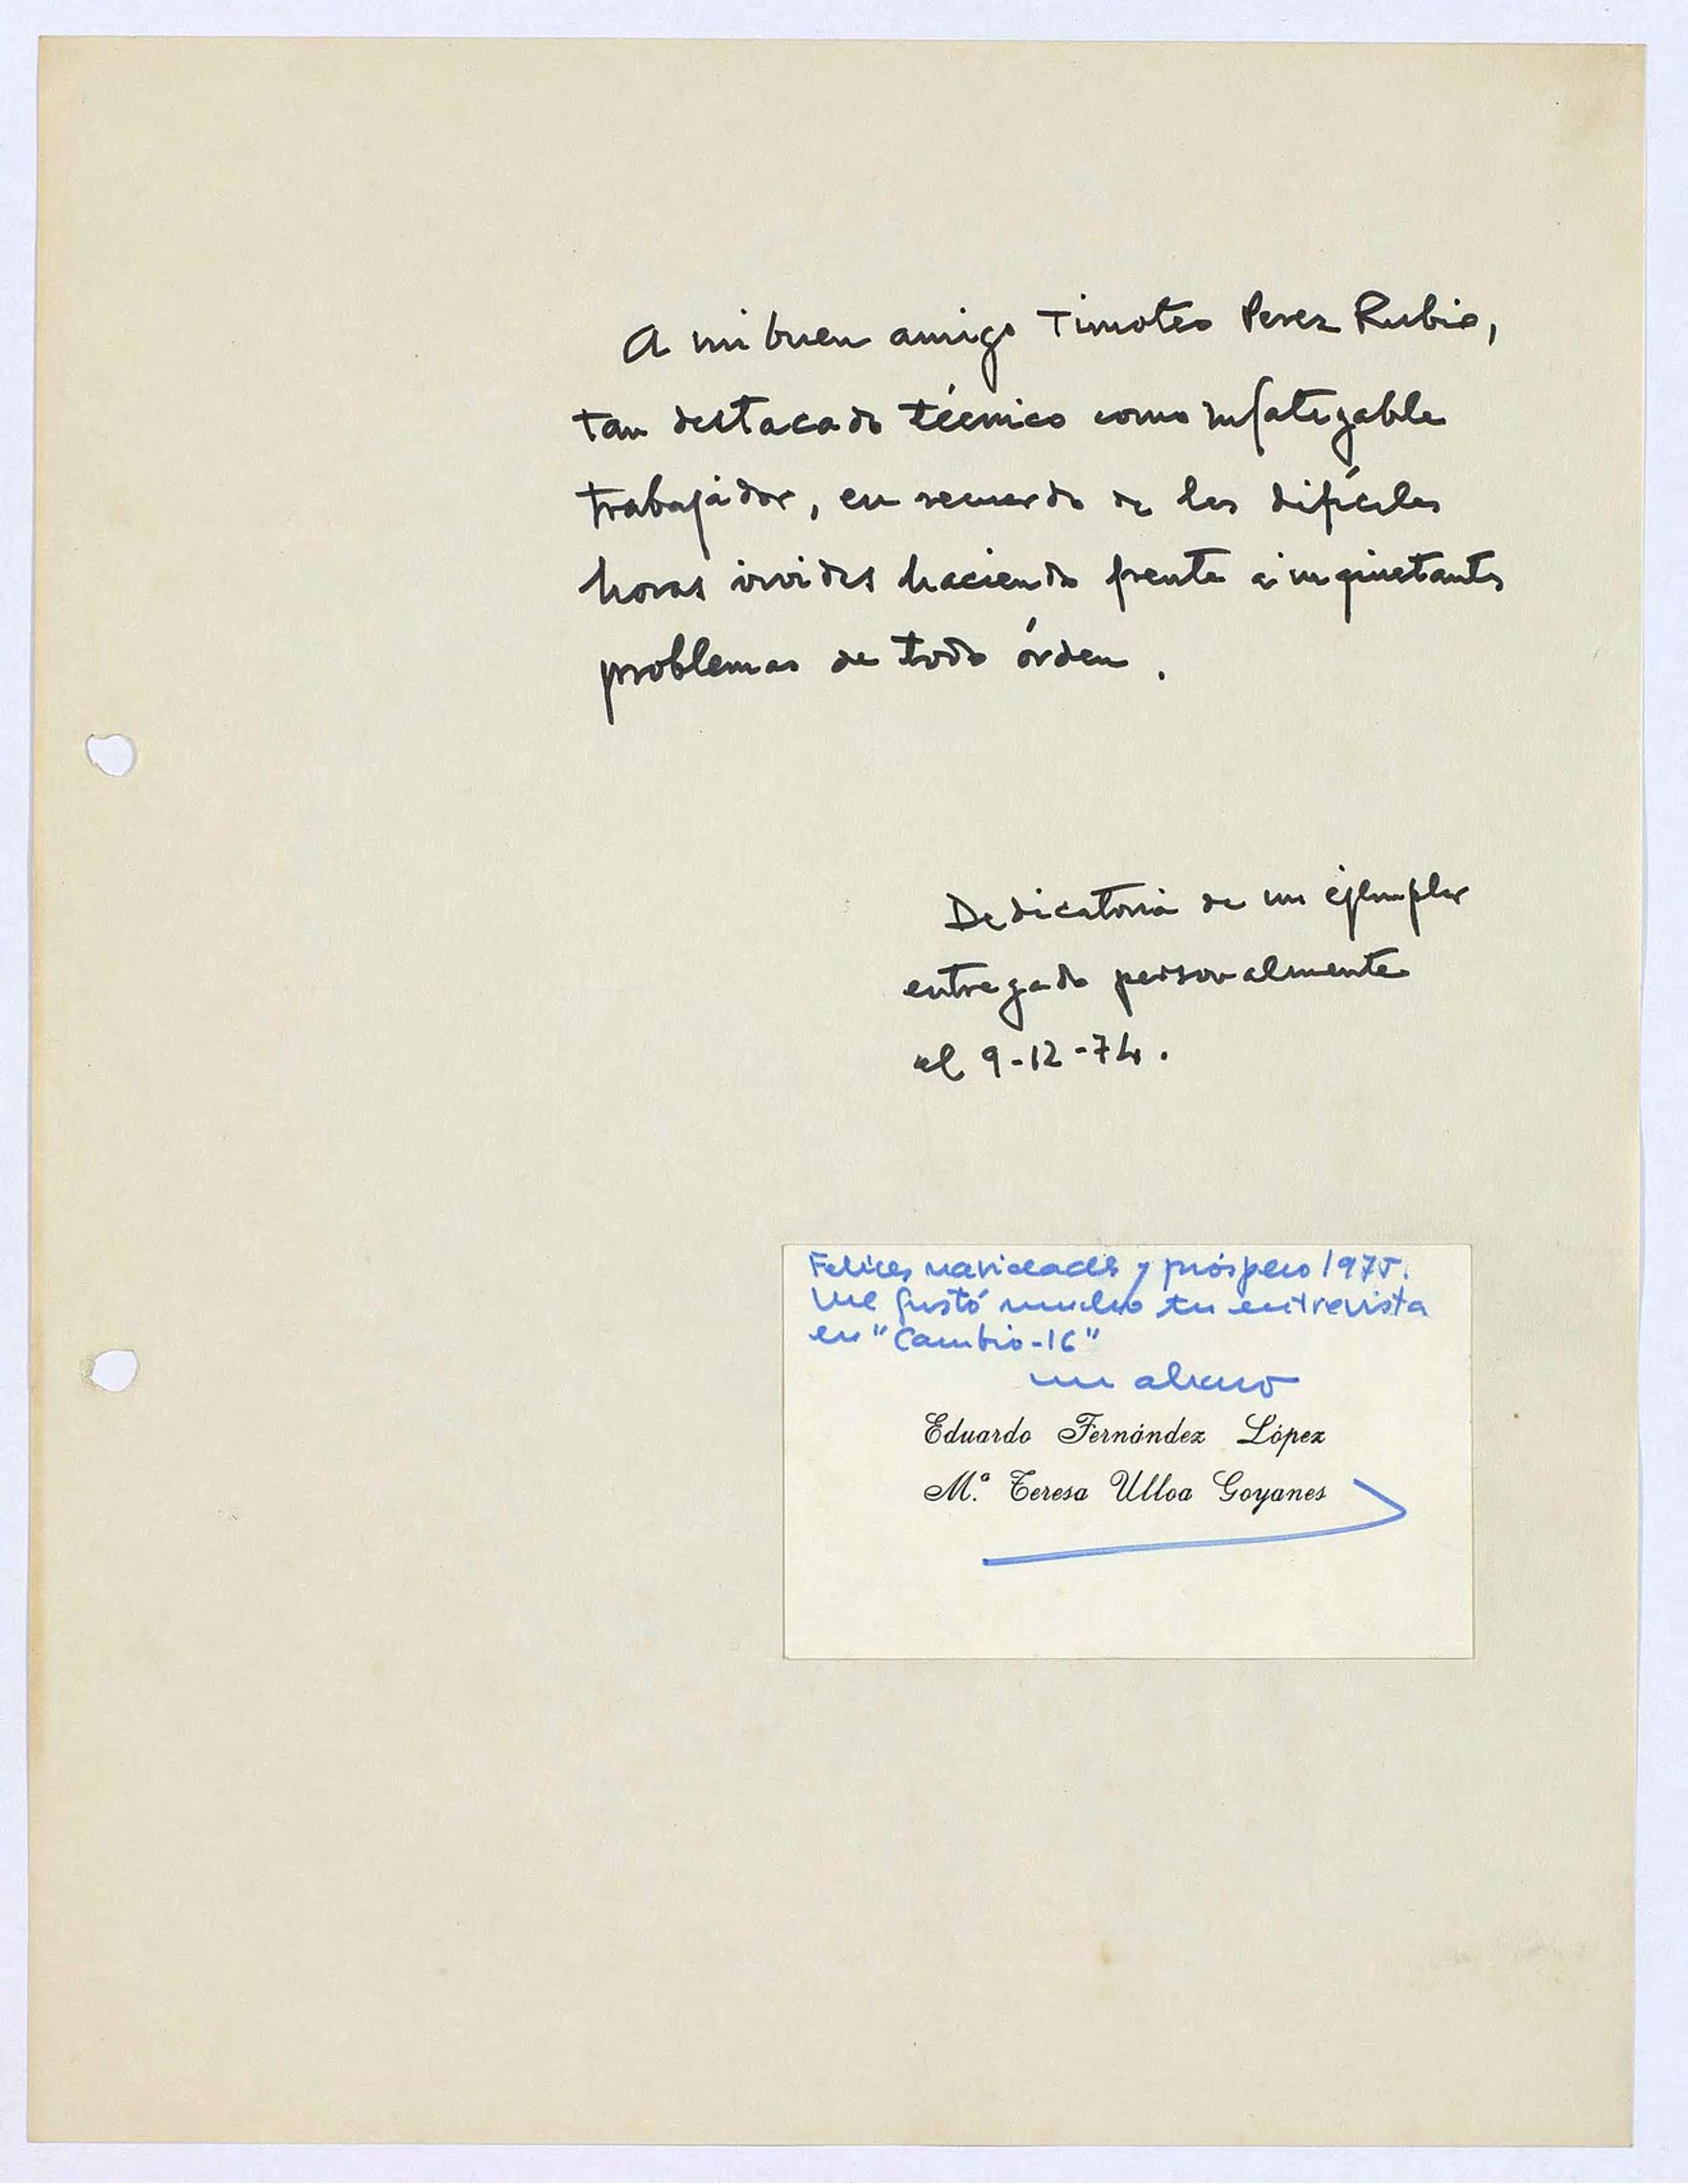 A mi buen amigo Timoteo Perez Rubio,
tan destacado técnico como infatigable
trabajador, en recuerdo de las difíciles
horas vividas haciendo frente a inquietantes
problemas de todo órden.
Dedicatoria de un ejemplar
entregado personalmente
el 9-12-74.
Felices navidades y próspero 1975.
Me gustó mucho tu entrevista
en "Cambio-16"
un abrazo
Eduardo Fernández López
M.ª Teresa Ulloa Goyanes